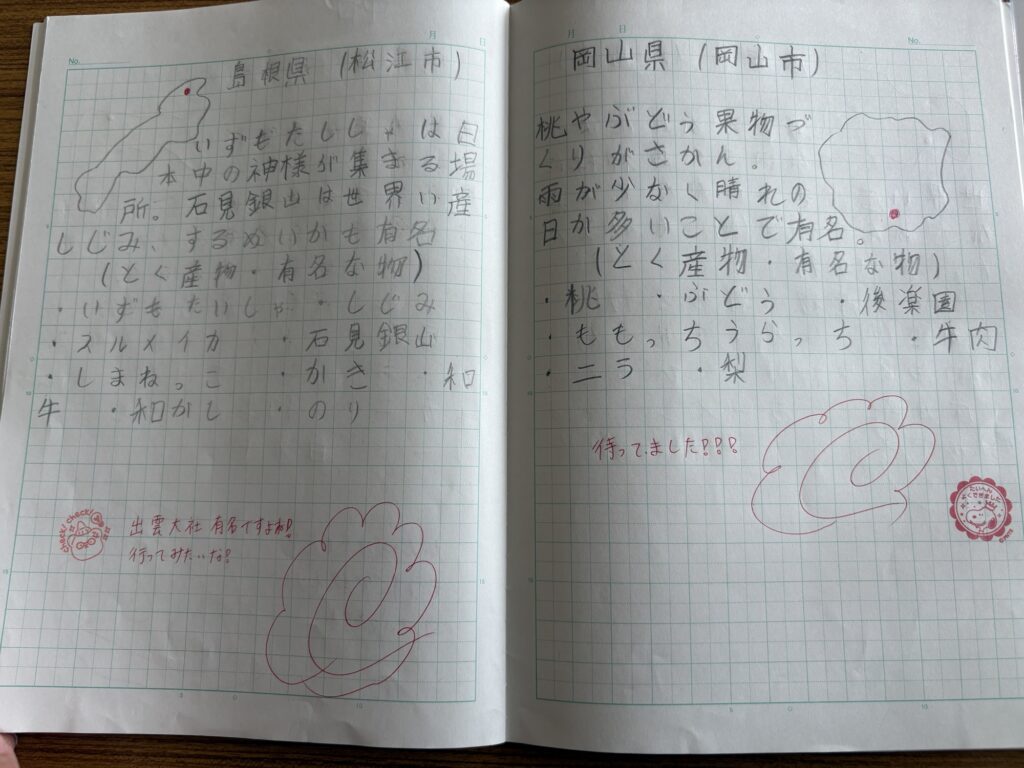 No.
月 日
島根県 (松江市)
いずもたいしゃは日
本中の神様が集まる場
所。石見銀山は世界い産
しじみ、するめいかも有名
(とく産物・有名な物)
・いずもたいしゃ ・しじみ
・スルメイカ ・石見銀山
・しまねっこ ・かき ・和
牛 ・和かし ・のり
出雲大社 有名ですよね!!
行ってみたいな!
月 日
No.
岡山県 (岡山市)
桃やぶどう果物づ
くりがさかん。
雨が少なく晴れの
日が多いことで有名。
(とく産物・有名な物)
・桃 ・ぶどう ・後楽園
・ももっちうらっち ・牛肉
・ニラ ・梨
待ってました!!!
たいへん
よくできました